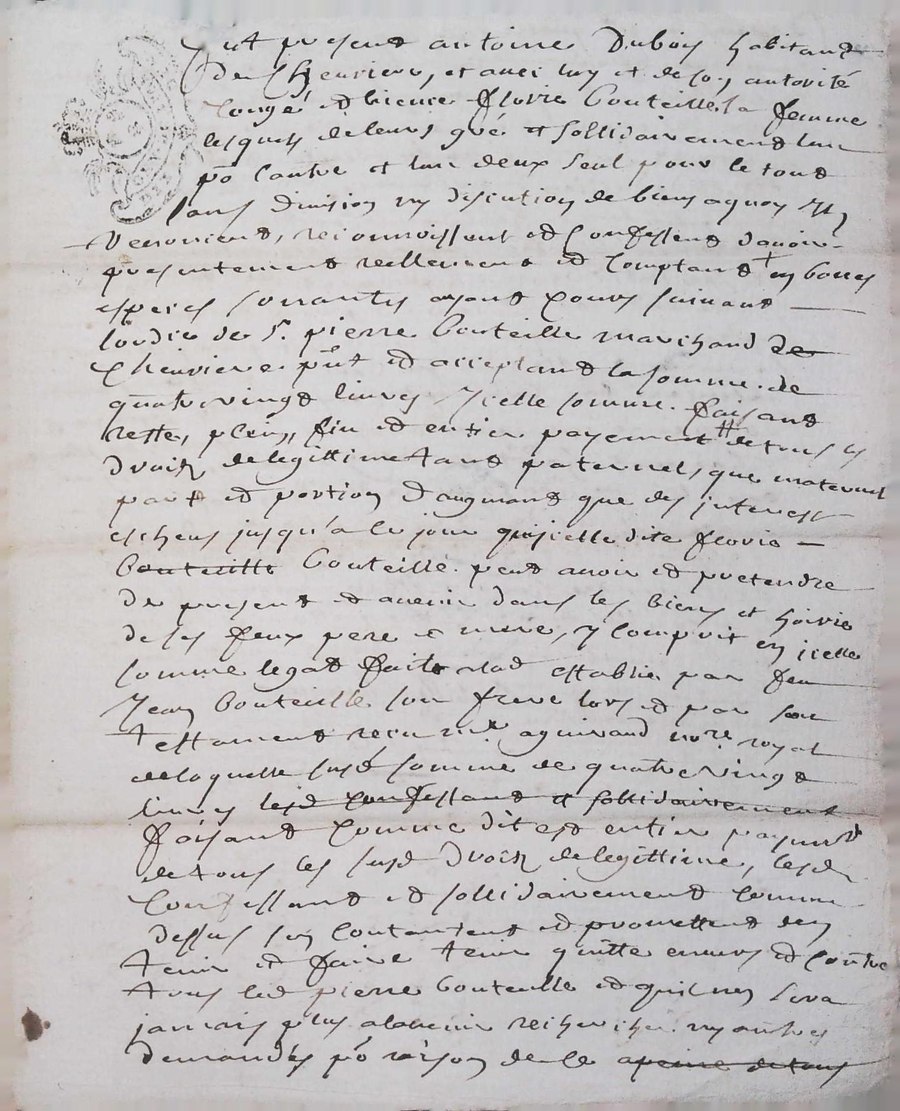 fut present antoine Duboy habitand
de Chenviere, et avec luy et de son autorité
congé et licence florie Bouteille sa femme
lesquels de leurs gré et sollidairement lun
po lautre et lun deux seul pour le tout
sans division ny discution de biens a quoy ils
renoncient, reconnoissent et confessent davoir
presentement reellement et comptant en bonnes
especes sonnantes ayant cours suivant
lordre de Sr pierre Bouteille marchand de
Chenviere pnt et acceptand la somme de
quatrevingt livres ycelle somme faisant
reste, plein, fin et entier payement de tous les
droits de legittime tant paternel, que maternel
part et portion daugmant que des interest
escheus jusqu'a le jour quicelle dite florie
Bouteille Bouteille peut avoir et pretendre
de present et avenir dans les biens et hoirie
de ses feux pere et mere, y comprit en icelle
somme legat fait et establie par feu
Jean Bouteille son frere lors et par son
testament receu me aguiraud nore royal
de laquelle susd somme de quatrevingt
livres lesd confessant et sollidairement
faisant comme dit est entier payemt
de tous les susd droits de legittime, lesd
confessant et sollidairement comme
dessus sen contantent et promettent den
tenir et faire tenir quitte envers et contre
tous led pierre bouteille et quil nen sera
jamais plus alavenir recherché ny autres
demandés po raison de le apeine de tous